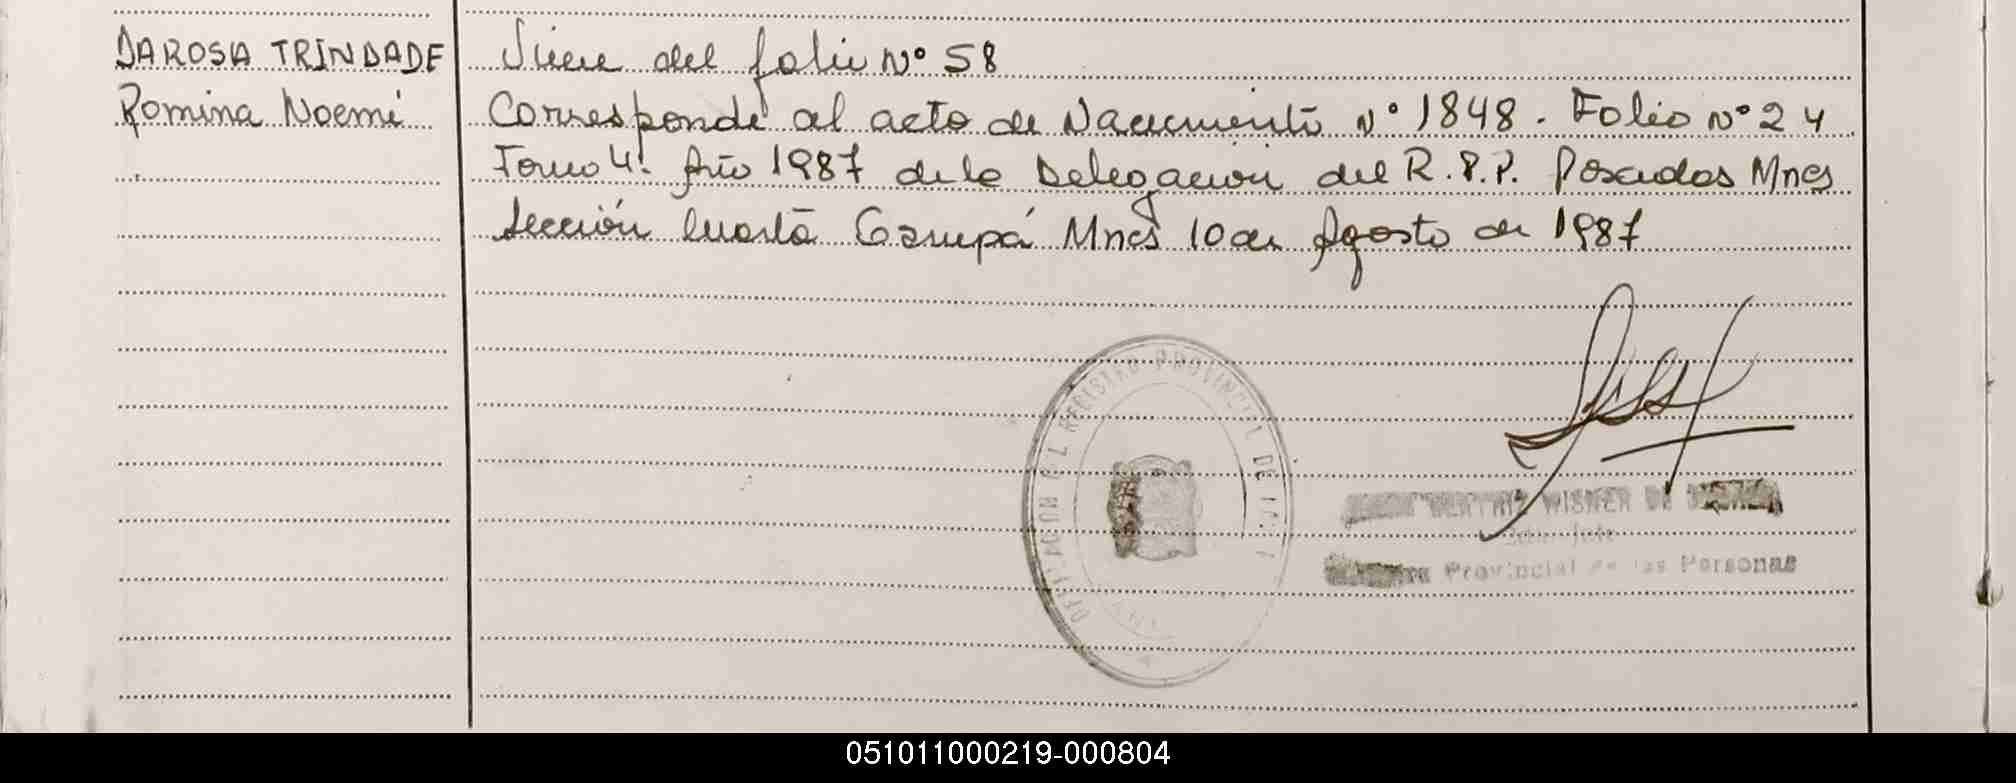 DAROSA TRINDADE
Romina Noemí
Viene del folio Nº 58
Corresponde al acto de Nacimiento Nº 1848. Folio Nº 24
Tomo 4º. Año 1987 de la Delegación del R.P.P. Posadas Mnes
Sección Cuarta Garupá Mnes 10 de Agosto de 1987
REGISTRO PROVINCIAL DE
WISNER DE
Provincial de las Personas
051011000219-000804